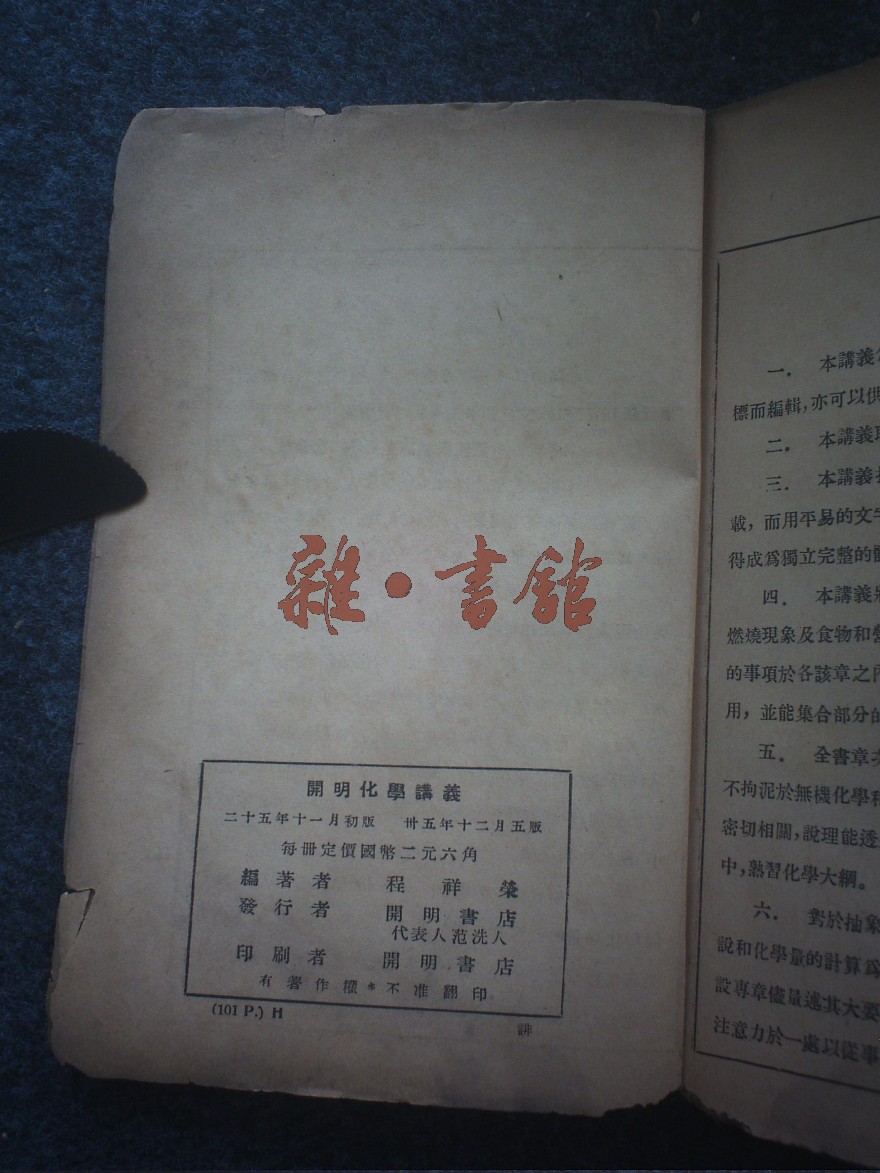 雜·書館
開明化學講義
二十五年十一月初版 卅五年十二月五版
每冊定價國幣二元六角
編著者 程祥榮
發行者 開明書店
代表人范洗人
印刷者 開明書店
有著作權*不准翻印
(101 P.) H
一. 本講義
標而編輯,亦可以供
二. 本講義
三. 本講義
載,而用平易的文字
得成爲獨立完整的
四. 本講義
燃燒現象及食物和
的事項於各該章之內
用,並能集合部分的
五. 全書章
不拘泥於無機化學和
密切相關,說理能透
中,熟習化學大綱。
六. 對於抽象
說和化學量的計算爲
設專章儘量述其大要
注意力於一處以從事